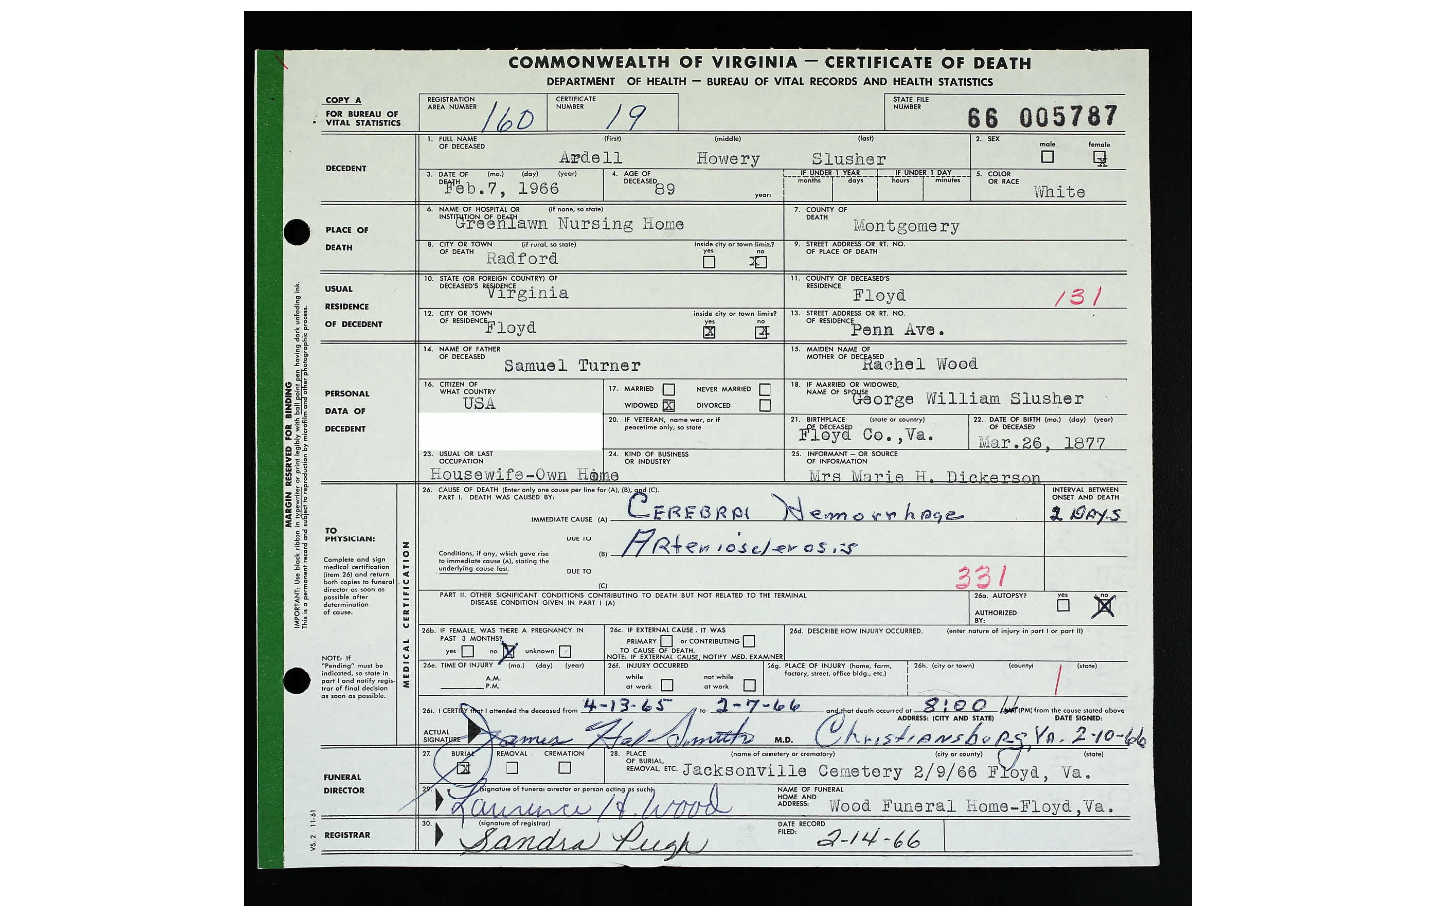 COMMONWEALTH OF VIRGINIA — CERTIFICATE OF DEATH
DEPARTMENT OF HEALTH — BUREAU OF VITAL RECORDS AND HEALTH STATISTICS
COPY A
FOR BUREAU OF
VITAL STATISTICS
REGISTRATION
AREA NUMBER 160
CERTIFICATE
NUMBER 19
STATE FILE
NUMBER 66 005787
DECEDENT
1. FULL NAME OF DECEASED (first) (middle) (last)
Ardell Howery Slusher
2. SEX male female X
3. DATE OF DEATH (mo.) (day) (year)
Feb.7, 1966
4. AGE OF DECEASED 89 years
IF UNDER 1 YEAR months days
IF UNDER 1 DAY hours minutes
5. COLOR OR RACE White
PLACE OF
DEATH
6. NAME OF HOSPITAL OR INSTITUTION OF DEATH (if none, so state)
Greenlawn Nursing Home
7. COUNTY OF DEATH
Montgomery
8. CITY OR TOWN OF DEATH (if rural, so state)
Radford
inside city or town limits? yes no X
9. STREET ADDRESS OR RT. NO. OF PLACE OF DEATH
USUAL
RESIDENCE
OF DECEDENT
10. STATE (OR FOREIGN COUNTRY) OF DECEASED'S RESIDENCE
Virginia
11. COUNTY OF DECEASED'S RESIDENCE
Floyd 131
12. CITY OR TOWN OF RESIDENCE
Floyd
inside city or town limits? yes X no
13. STREET ADDRESS OR RT. NO. OF RESIDENCE
Penn Ave.
PERSONAL
DATA OF
DECEDENT
14. NAME OF FATHER OF DECEASED
Samuel Turner
15. MAIDEN NAME OF MOTHER OF DECEASED
Rachel Wood
16. CITIZEN OF WHAT COUNTRY
USA
17. MARRIED NEVER MARRIED
WIDOWED X DIVORCED
18. IF MARRIED OR WIDOWED, NAME OF SPOUSE
George William Slusher
20. IF VETERAN, name war, or if peacetime only, so state
21. BIRTHPLACE OF DECEASED (state or country)
Floyd Co.,Va.
22. DATE OF BIRTH (mo.) (day) (year) OF DECEASED
Mar.26, 1877
23. USUAL OR LAST OCCUPATION
Housewife-Own Home
24. KIND OF BUSINESS OR INDUSTRY
25. INFORMANT — OR SOURCE OF INFORMATION
Mrs Marie H. Dickerson
TO
PHYSICIAN:
Complete and sign
medical certification
(item 26) and return
both copies to funeral
director as soon as
possible after
determination
of cause.
NOTE: If
"Pending" must be
indicated, so state in
part I and notify regis-
trar of final decision
as soon as possible.
MEDICAL CERTIFICATION
26. CAUSE OF DEATH (Enter only one cause per line for (A), (B), and (C).
PART I. DEATH WAS CAUSED BY:
INTERVAL BETWEEN
ONSET AND DEATH
IMMEDIATE CAUSE (A) Cerebral Hemorrhage 2 Days
DUE TO
Conditions, if any, which gave rise
to immediate cause (A), stating the
underlying cause last.
(B) Arteriosclerosis
DUE TO
(C)
331
PART II. OTHER SIGNIFICANT CONDITIONS CONTRIBUTING TO DEATH BUT NOT RELATED TO THE TERMINAL
DISEASE CONDITION GIVEN IN PART I (A)
26a. AUTOPSY? yes no X
AUTHORIZED
BY:
26b. IF FEMALE, WAS THERE A PREGNANCY IN
PAST 3 MONTHS?
yes no X unknown
26c. IF EXTERNAL CAUSE, IT WAS
PRIMARY or CONTRIBUTING
TO CAUSE OF DEATH.
NOTE: IF EXTERNAL CAUSE, NOTIFY MED. EXAMINER
26d. DESCRIBE HOW INJURY OCCURRED. (enter nature of injury in part I or part II)
26e. TIME OF INJURY (mo.) (day) (year)
A.M.
P.M.
26f. INJURY OCCURRED
while at work
not while at work
26g. PLACE OF INJURY (home, farm,
factory, street, office bldg., etc.)
26h. (city or town) (county) (state)
26i. I CERTIFY that I attended the deceased from 4-13-65 to 2-7-66 and that death occurred at 8:00 (PM) from the cause stated above
ADDRESS: (CITY AND STATE) DATE SIGNED:
ACTUAL
SIGNATURE James Hal Smith M.D. Christiansburg, Va. 2-10-66
FUNERAL
DIRECTOR
27. BURIAL X REMOVAL CREMATION
28. PLACE OF BURIAL, REMOVAL, ETC. (name of cemetery or crematory) (city or county) (state)
Jacksonville Cemetery 2/9/66 Floyd, Va.
29. (signature of funeral director or person acting as such)
Laurence H. Wood
NAME OF FUNERAL
HOME AND
ADDRESS: Wood Funeral Home-Floyd,Va.
REGISTRAR
30. (signature of registrar)
Sandra Pugh
DATE RECORD
FILED: 2-14-66
MARGIN RESERVED FOR BINDING
IMPORTANT: Use black ribbon in typewriter or print legibly with ball point pen having dark unfading ink.
This is a permanent record and subject to reproduction by microfilming and other photographic process.
VS. 2 11-61